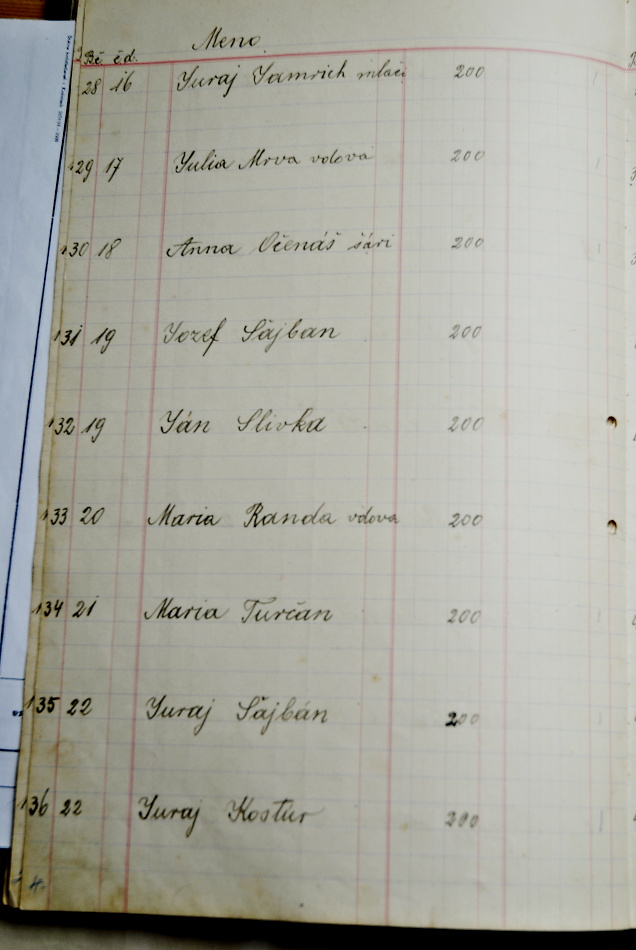 Meno
Bč čd.
28 16 Juraj Jamrich mladí 200
129 17 Julia Mrva vdova 200
130 18 Anna Očenáš šári 200
131 19 Jozef Šajban 200
132 19 Ján Slivka 200
133 20 Maria Randa vdova 200
134 21 Maria Turčan 200
135 22 Juraj Šajbán 200
136 22 Juraj Kostúr 200